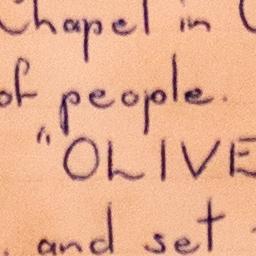 Chapel in
of people.
"OLIVE
. and set